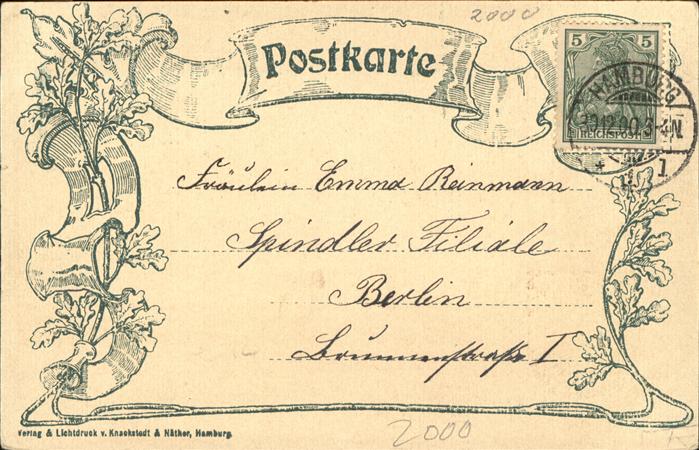 2000
Postkarte
5 5
REICHSPOST
HAMBURG
12.90.3-4N.
1
Fräulein Emma Reinmann
Spindler Filiale
Berlin
Brunnenstraße I
Verlag & Lichtdruck v. Knackstedt & Näther, Hamburg.
2000